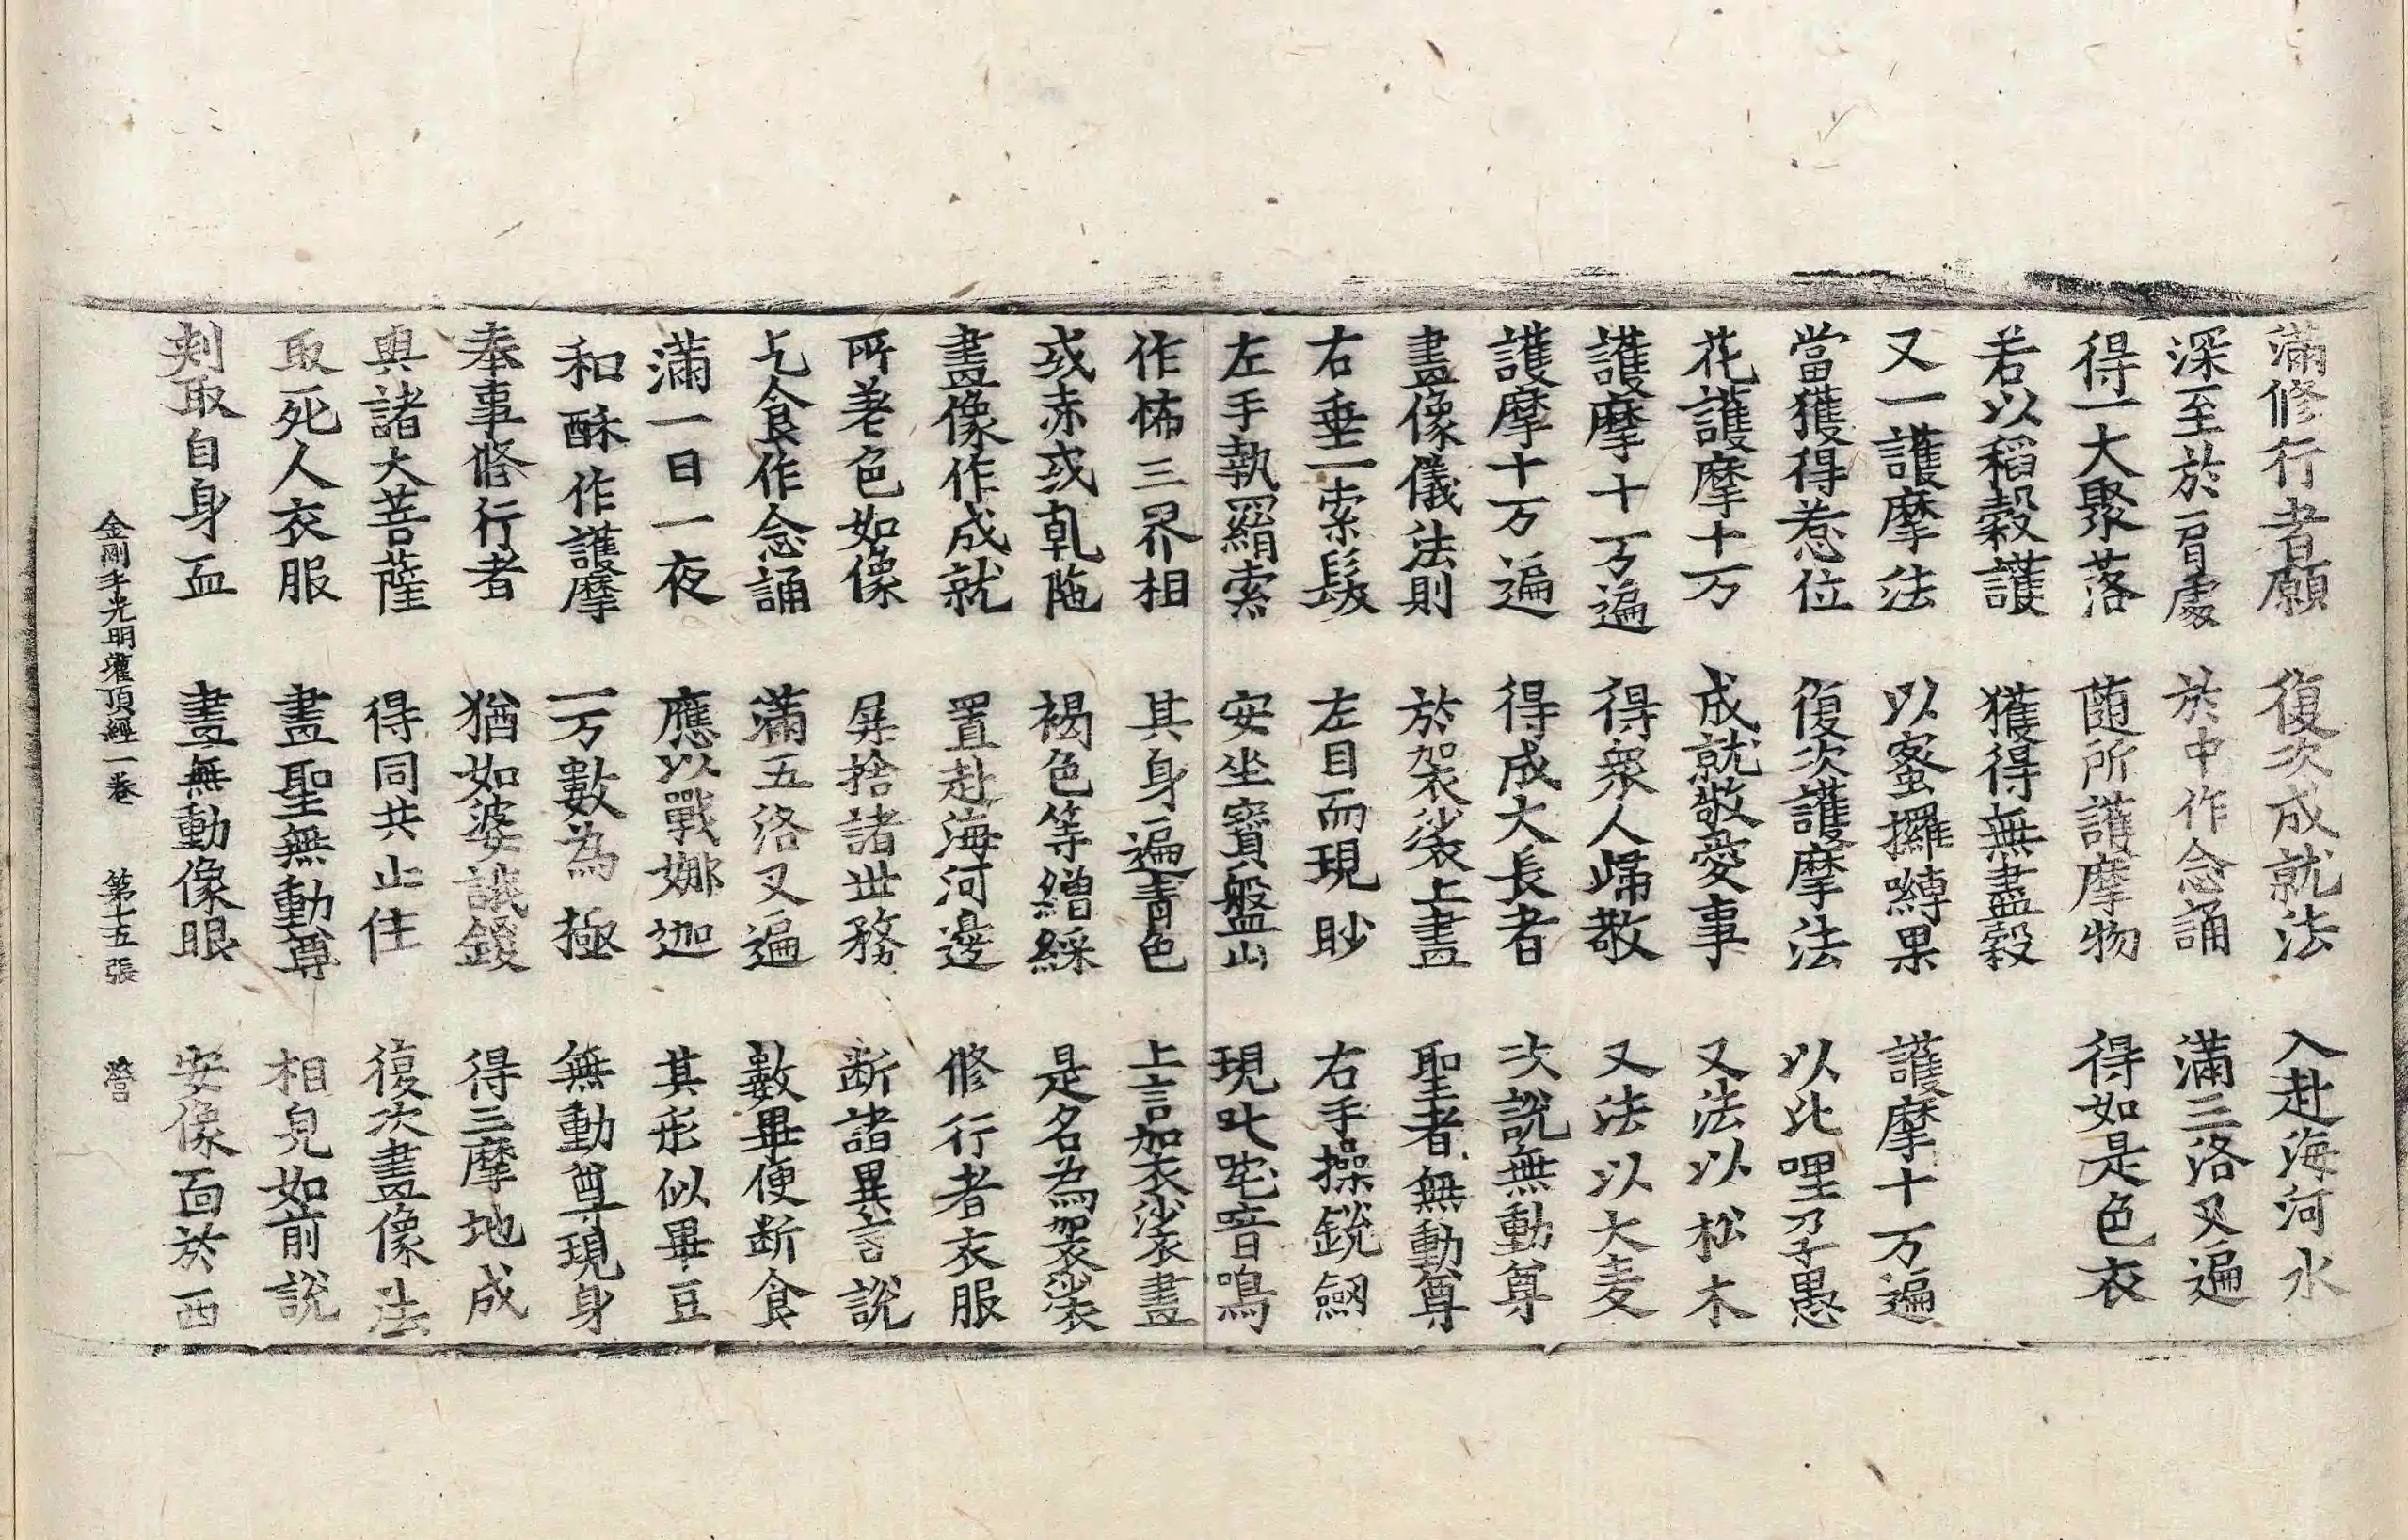 滿修行者願　復次成就法　入赴海河水
深至於肩處　於中作念誦　滿三洛叉遍
得一大聚落　随所護摩物　得如是色衣
若以稻穀護　獲得無盡穀
又一護摩法　以蜜攞嚩果　護摩十万遍
當獲得惹位　復次護摩法　以比哩孕愚
花護摩十万　成就敬愛事　又法以松木
護摩十万遍　得衆人歸敬　又法以大麦
護摩十万遍　得成大長者　次説無動尊
畫像儀法則　於袈裟上畫　聖者無動尊
右垂一索髮　左目而現眇　右手操銳劒
左手執羂索　安坐寶盤山　現叱咤喑鳴
作怖三界相　其身遍青色　上言加衣裟畫
或赤或乹陁　褐色等繒綵　是名為袈裟
畫像作成就　置赴海河邊　修行者衣服
所著色如像　屏捨諸世務　断諸異言説
乞食作念誦　滿五洛叉遍　數畢便断食
滿一日一夜　應以戰娜迦　其形似畢豆
和酥作護摩　一万數為極　無動尊現身
奉事修行者　猶如婆誐鑁　得三摩地成
與諸大菩薩　得同共止住　復次畫像法
取死人衣服　畫聖無動尊　相見如前説
刾取自身血　畫無動像眼　安像面於西
金剛手光明灌頂經一卷　第十五張